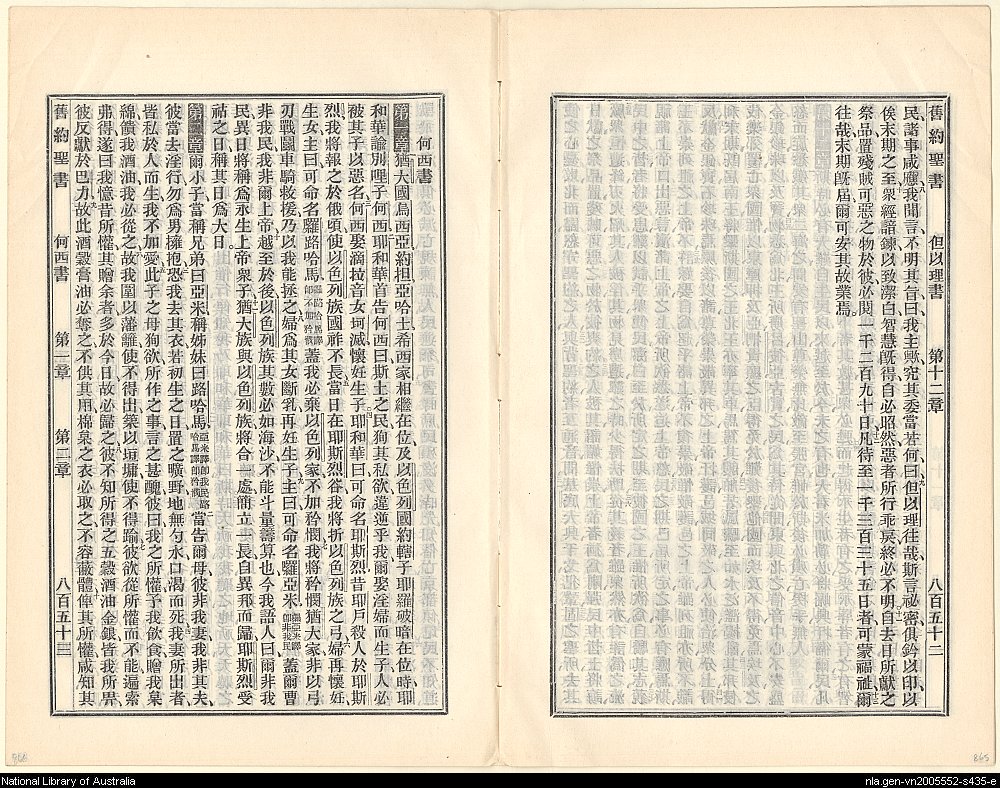 舊約聖書 但以理書 第十二章 八百五十二
民諸事咸應我聞言不明其旨曰我主歟究其委當若何曰但以理往哉斯言祕密俱鈐以印以
俟末期之至衆經諳鍊以致潔白智慧旣得自必昭然惡者所行乖戾終必不明自去日所獻之
祭品置殘賊可惡之物於彼必閱一千二百九十日凡待至一千三百三十五日者可蒙福祉爾
往哉末期旣屆爾可安其故業焉
何西書
第一章猶大國烏西亞約担亞哈士希西家相繼在位及以色列國約轄子耶羅破暗在位時耶
和華諭別哩子何西耶和華首告何西曰斯土之民狥其私欲違逆乎我爾娶淫婦而生子人必
被其子以惡名何西娶滴拉音女坷滅懷妊生子耶和華曰可命名耶斯烈昔耶戶殺人於耶斯
烈我將報之於俄頃使以色列族國祚不長當日在耶斯烈谷我將折以色列族之弓婦再懷妊
生女主曰可命名羅路哈馬羅路哈馬譯卽不加矜憫蓋我必棄以色列家不加矜憫我將矜憫猶大家非以弓
刃戰鬭車騎救援乃以我能拯之婦爲其女斷乳再妊生子主曰可命名羅亞米羅亞米譯卽非我民蓋爾曹
非我民我非爾上帝越至於後以色列族其數必如海沙不能斗量籌算也今我語人曰爾非我
民異日將稱爲永生上帝衆子猶大族與以色列族將合一處簡立一長自異邦而歸耶斯烈受
祜之日稱其日爲大日
第二章爾小子當稱兄弟曰亞米稱姊妹曰路哈馬亞米譯卽我民路哈馬譯卽矜憫當告爾母彼非我妻我非其夫
彼當去淫行勿爲男擁抱恐我去其衣若初生之日置之曠野地無勺水口渴而死我妻所出者
皆私於人而生我不加愛此子之母狥欲所作之事言之甚醜彼曰我之所懽予我飲食贈我枲
綿饋我酒油我必從之故我圍以藩籬使不得出築以垣墉使不得踰彼欲從所懽而不能遍索
弗得遂曰我憶昔所懽其贈余者多於今日故必歸之彼不知所得之五穀酒油金銀皆我所畀
彼反獻於巴力故此酒穀膏油必奪之不俱其用棉枲之衣必取之不容蔽體俾其所懽咸知其
舊約聖書 何西書 第一章 第二章 八百五十三
National Library of Australia
nla.gen-vn2005552-s435-e